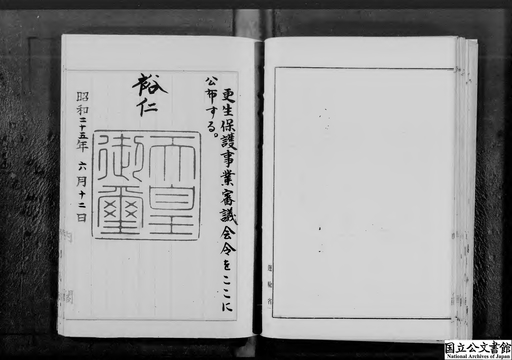 更生保護事業審議会令をここに
公布する。
裕仁
天皇
御璽
昭和二十五年六月十二日
国立公文書館
National Archives of Japan